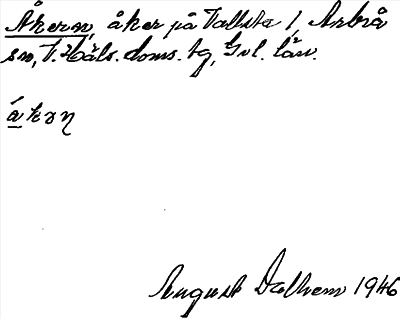 Åkern, åker på Vallsta 1, Arbrå
sn, V. Häls. doms. tg, Gvl. län.
ǻkəꞃ
August Dalhem 1946